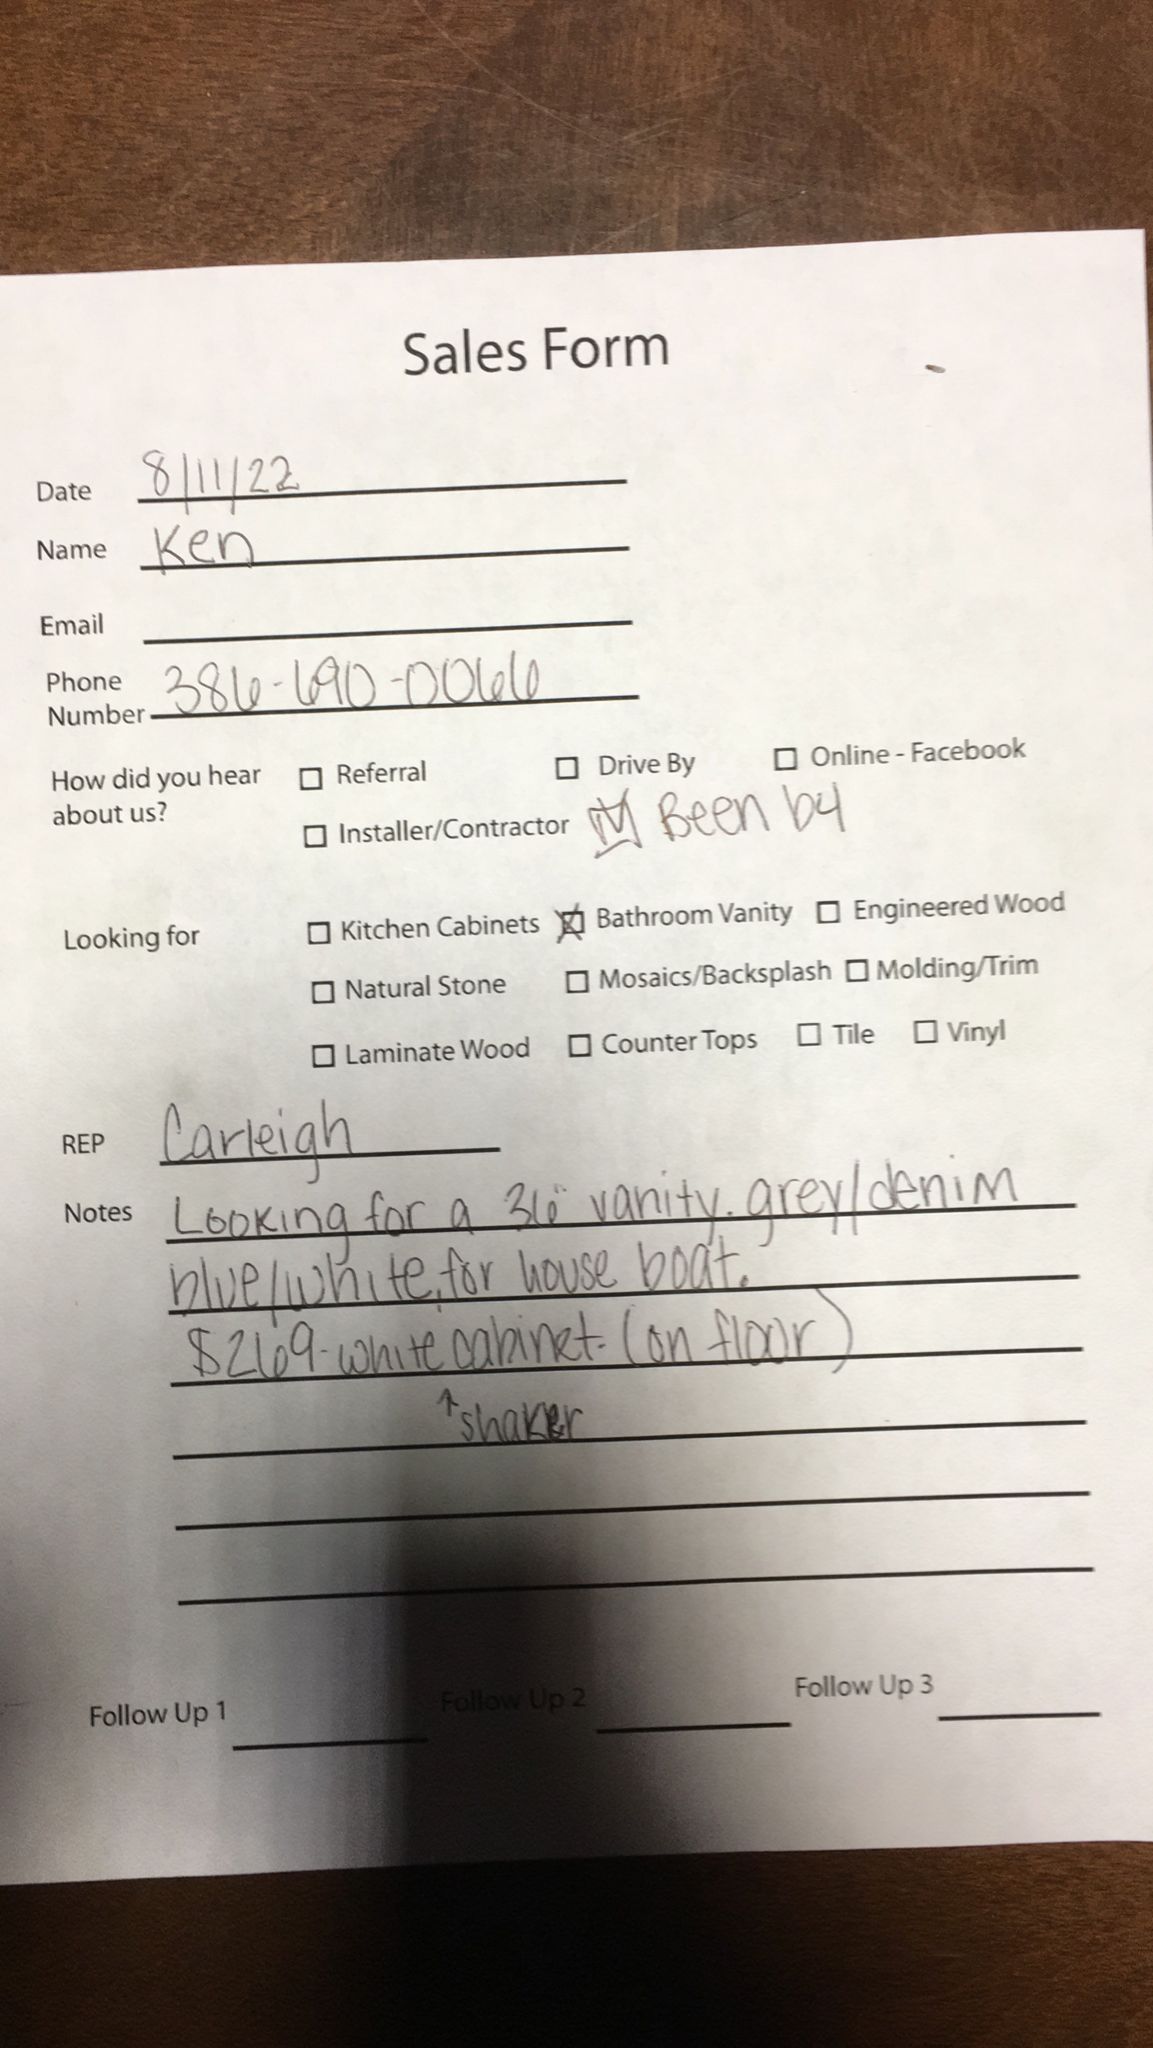 Sales Form
Date 8/11/22
Name Ken
Email
Phone Number 386-690-0066
How did you hear about us? ☐ Referral ☐ Drive By ☐ Online - Facebook
☐ Installer/Contractor ☑ Been by
Looking for ☐ Kitchen Cabinets ☒ Bathroom Vanity ☐ Engineered Wood
☐ Natural Stone ☐ Mosaics/Backsplash ☐ Molding/Trim
☐ Laminate Wood ☐ Counter Tops ☐ Tile ☐ Vinyl
REP Carleigh
Notes Looking for a 36" vanity. grey/denim
blue/white, for house boat.
$269-white cabinet. (on floor)
↑shaker
Follow Up 1 Follow Up 2 Follow Up 3